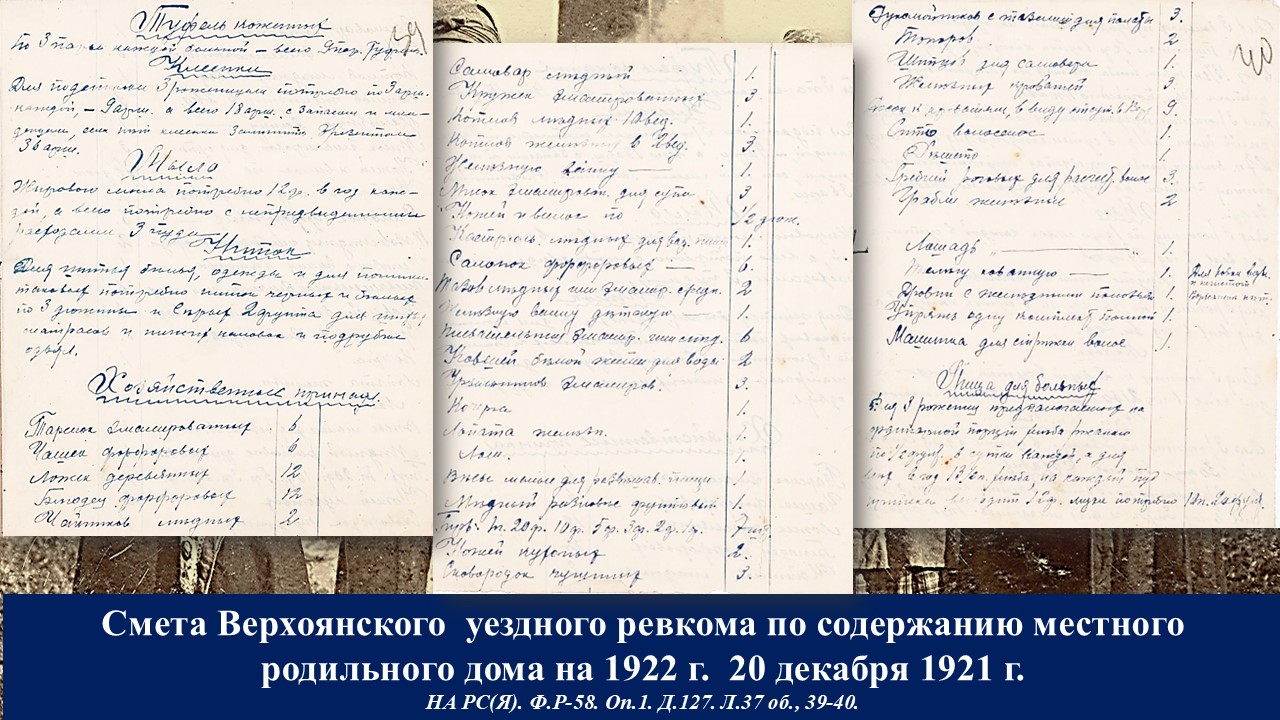 Туфель кожаных
По 3 пары каждой больной – всего 9 пар. Туфель.
Клеенки
Для подстилки 3 роженицам потребно по 3 арш.
каждой, – 9 арш. а всего 18 арш. с запасом и
если нет клеенки заменить брезентом
38 арш.
Мыло
Жирового мыла потребно 12 ф. в год каж-
дой, а всего потребно с непредвиденными
расходами 3 пуда
Ниток
Для шитья белья, одежды и для
потребно ниток черных и белых
по 3 дюжины и серых 2 фунта для
матрасов и
Хозяйственные принад.
Тарелок эмалированных 6
Чашек фарфоровых 6
Ложек деревянных 12
Блюдец фарфоровых 12
Чайников медных 2
39
Самовар медный 1.
Кружек эмалированных 3
Котлов медных 1.
Котлов железных в 2 вед. 3.
Железную ванну — 1.
Мисок эмалиров. для супа 3
Ножей и вилок по 1/2 дюж.
Кастрюль медных для 1.
Салонок фарфоровых — 6.
Тазов медных или эмалир. средн. 2
Железную ванну детскую — 1.
эмалир. или 6
Ковшей белой жести для воды 2
эмалиров. 3.
Кочерга 1.
Лопата желез. 1.
Лом. 1.
Весы малые для развешив. пищи 1.
Медный развес фунтовый 1.
20 ф. 10 ф. 5 ф. 3 ф. 2 ф. 1 ф.
Ножей кухонных 2.
Сковородок чугунных 3.
Рукомойников с тазами для палаты 3.
Топоров 2
Щипцов для самовара 1.
Железных кроватей 3
к кроватям, в виду отсут. в 9.
Сито волосяное 1.
Решето 1.
Гребней роговых для расчес. волос 3.
Грабли железные 2
40
Лошадь — 1.
Телегу кованную — 1.
Для возки воды
Дровни с железными полозьями 1.
Упряжь одну комплект полный 1.
Машинка для стрижки волос 1.
Пища для больных
Для 3 рожениц предполагаемых на
порции
в сутки каждой, а для
в год
12 ф.
Смета Верхоянского уездного ревкома по содержанию местного
родильного дома на 1922 г. 20 декабря 1921 г.
НА РС(Я). Ф.Р-58. Оп.1. Д.127. Л.37 об., 39-40.